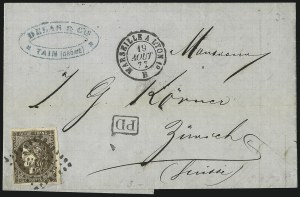 DELAS & Cie
TAIN (DROME)
MARSEILLE A LYON 1o
19
AOUT
E
Monsieur
J G Körner
PD
Zürich
(Suisse)